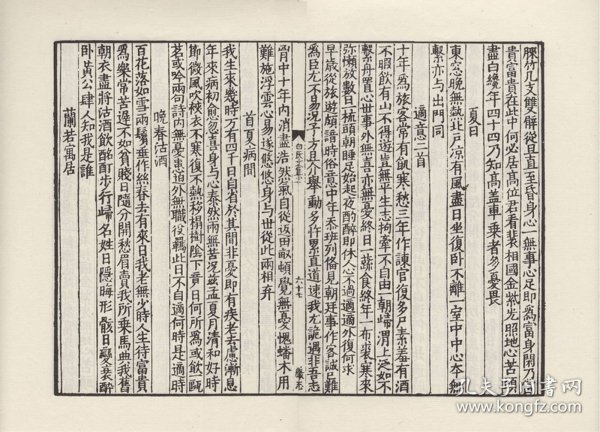 脛竹几支雙髀從旦直至昏身心一無事心足即爲富身閑乃當
貴富貴在此中何必居高位君看裴相國金紫光照地心苦頭
盡白纔年四十四乃知高蓋車乗者多憂畏
夏日
東窓晚無熱北戶凉有風盡日坐復卧不離一室中中心本無
繫亦與出門同
適意二首
十年爲旅客常有飢寒愁三年作諫官復多尸素羞有酒
不暇飲有山不得遊豈無平生志拘牽不自由一朝歸渭上泛如不
繫舟置心世事外無喜亦無憂終日一蔬食終年一布裘寒來
弥懶放數日一梳頭朝睡足始起夜酌醉即休人心不過適適外復何求
早歲從旅遊頗諳時俗意中年忝班列備見朝廷事作客誠已難
爲臣尤不易況予方且介舉動多忤累直道速我尤詭遇非吾志
白氏文集六
十七
胷中十年内消盡浩然氣自從返田畝頓覺無憂愧蟠木用
難施浮雲心易遂悠悠身與世從此兩相弃
首夏病間
我生來幾時万有四千日自省於其間非憂即有疾老去慮漸息
年來病初愈忽喜身與心泰然兩無苦況兹孟夏月清和好時
節微風吹裌衣不寒復不熱移榻樹陰下竟日何所爲或飲一甌
茗或吟兩句詩内無憂患迫外無職役羈此日不自適何時是適時
晚春沽酒
百花落如雪兩鬢垂作絲春去有來日我老無少時人生待富貴
爲樂常苦遲不如貧賤日隨分開愁眉賣我所乗馬典我舊
朝衣盡將沽酒飲酩酊步行歸名姓日隱晦形骸日變衰醉
卧黄公肆人知我是誰
蘭若寓居
孔夫子旧书网
www.kongfz.com